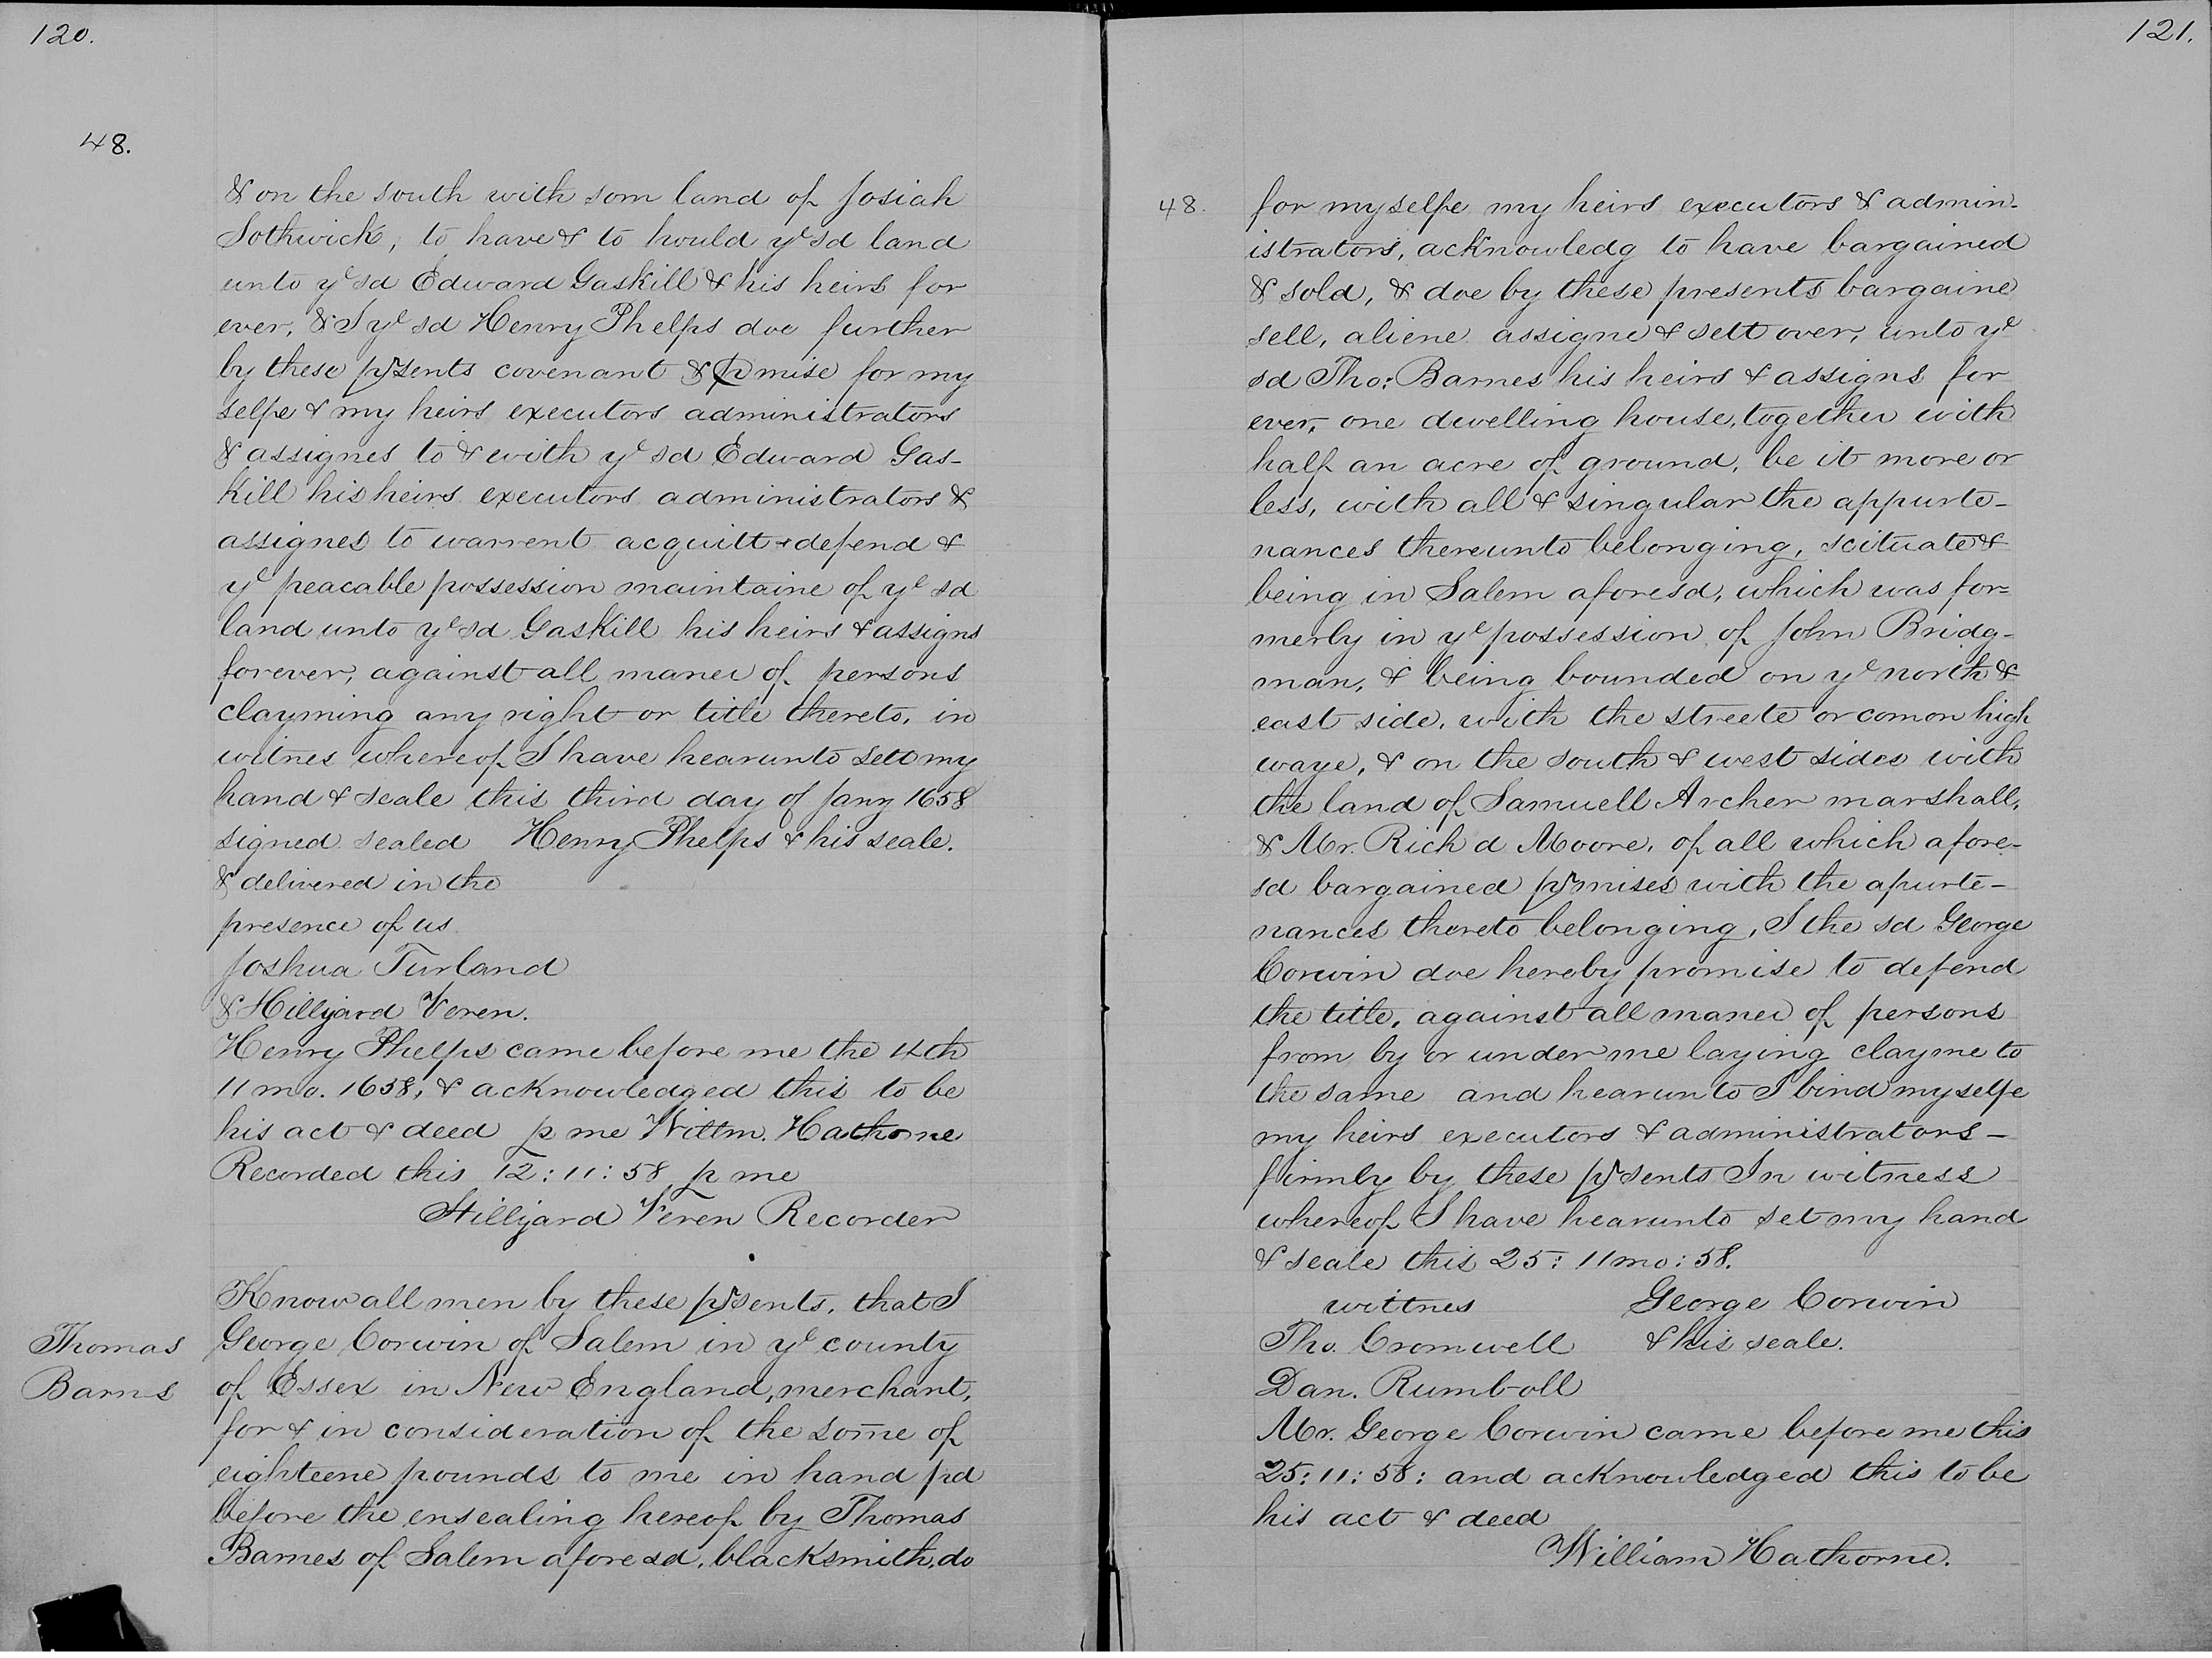 120.
48.
& on the south with som land of Josiah
Sothwick, to have & to hould ye sd land
unto ye sd Edward Gaskill & his heirs for
ever, & I ye sd Henry Phelps doe further
by these psents covenant & pmise for my
selfe & my heirs executors administrators
& assignes to & with ye sd Edward Gas-
kill his heirs executors administrators &
assignes to warrent acquitt & defend &
ye peacable possession maintaine of ye sd
land unto ye sd Gaskill his heirs & assigns
forever, against all maner of persons
clayming any right or title thereto, in
witnes whereof I have hearunto sett my
hand & seale this third day of Jany 1658
signed sealed Henry Phelps & his seale.
& delivered in the
presence of us
Joshua Turland
& Hillyard Veren.
Henry Phelps came before me the 4th
11 mo. 1658, & acknowledged this to be
his act & deed p me Willm. Hathorne
Recorded this 12:11:58 p me
Hillyard Veren Recorder
Know all men by these psents, that I
Thomas
Barns
George Corwin of Salem in ye county
of Essex in New England, merchant,
for & in consideration of the some of
eighteene pounds to me in hand pd
before the ensealing hereof by Thomas
Barnes of Salem afore sd, blacksmith, do
121.
48.
for myselfe my heirs executors & admin-
istrators, acknowledg to have bargained
& sold, & doe by these presents bargaine
sell, aliene assigne & sett over, unto ye
sd Tho: Barnes his heirs & assigns for
ever, one dwelling house, together with
half an acre of ground, be it more or
less, with all & singular the appurte-
nances thereunto belonging, scituate &
being in Salem aforesd, which was for=
merly in ye possession of John Bridg-
man, & being bounded on ye north &
east side, with the streete or comon high
waye, & on the south & west sides with
the land of Samuell Archer marshall,
& Mr. Rich d Moore, of all which afore-
sd bargained pmises with the apurte-
nances thereto belonging, I the sd George
Corwin doe hereby promise to defend
the title, against all maner of persons
from by or under me laying clayme to
the same and hearunto I bind myselfe
my heirs executors & administrators -
firmly by these psents In witness
whereof I have hearunto set my hand
& seale this 25: 11 mo: 58.
wittnes George Corwin
Tho. Cromwell & his seale.
Dan. Rumboll
Mr. George Corwin came before me this
25: 11: 58: and acknowledged this to be
his act & deed
William Hathorne.